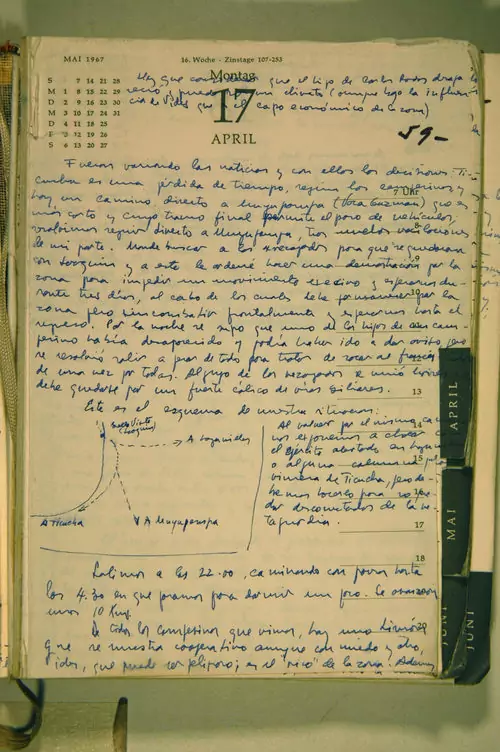 MAI 1967
16. Woche · Zinstage 107-253
S 7 14 21 28
M 1 8 15 22 29
D 2 9 16 23 30
M 3 10 17 24 31
D 4 11 18 25
F 5 12 19 26
S 6 13 20 27
Montag
17
APRIL
hay que considerar que el hijo de Carlos Rodas desapa
reció y puede ser un chivato (aunque bajo la influen
cia de Vides que es el capo económico de la zona)
59-
Fueron variando las noticias y con ellos las decisiones: Ti-
cucha es una pérdida de tiempo, según los campesinos y
hay un camino directo a Muyupampa (Vaca Guzmán) que es
más corto y cuyo tramo final permite el paso de vehículos;
resolvimos seguir directo a Muyupampa, tras muchas vacilaciones
de mi parte. Mandé buscar a los rezagados para que se quedaran
con Joaquín y a este le ordené hacer una demostración por la
zona para impedir un movimiento excesivo y esperarnos du-
rante tres días, al cabo de los cuales debe permanecer por la
zona pero sin combatir frontalmente y esperarnos hasta el
regreso. Por la noche se supo que uno de los hijos de un cam-
pesino había desaparecido y podía haber ido a dar aviso, pero
se resolvió salir a pesar de todo para tratar de sacar al francés
de una vez por todas. Al grupo de los rezagados se unió Moisés
debe quedarse por un fuerte cólico de vías biliares.
Este es el esquema de nuestra situación:
Bella Vista
(Joaquín)
A Lagunillas
A Ticucha
A Muyupampa
Al volver por el mismo cami
nos exponemos a chocar
el ejército alertado en Lagun
o alguna columna que
viniera de Ticucha, pero de-
bemos hacerlo para no que-
dar desconectados de la re-
taguardia.
Salimos a las 22.00, caminando con pausas hasta
las 4.30 en que paramos para dormir un poco. Se avanzaron
unos 10 Kms.
De todos los campesinos que vimos, hay uno Simón
que se muestra cooperativo aunque con miedo y otro,
Vides, que puede ser peligroso; es el "rico" de la zona. Además
7 Uhr
8
9
10
13
14
15
16
17
18
20
APRIL
MAI
JUNI
JUNI